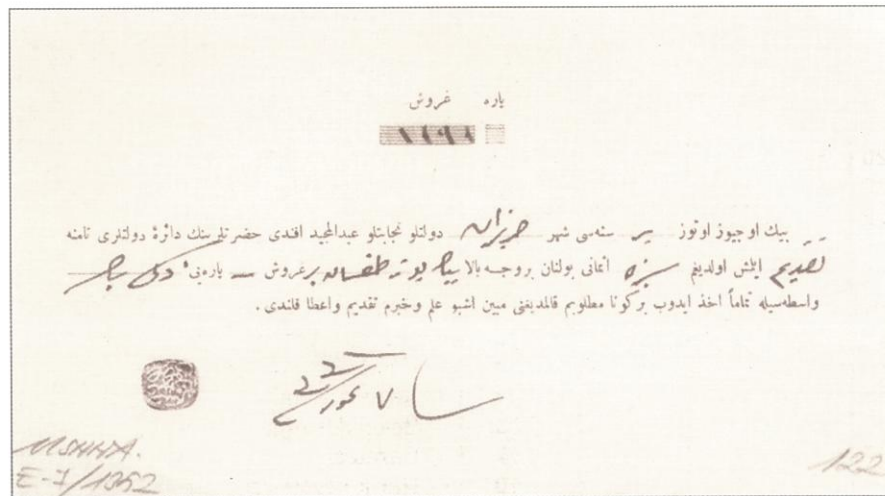 پاره غروش
١٢٩١
بيك اوچيوز اوتوز بر سنه‌سى شهر حزيران دولتلو نجابتلو عبدالمجيد افندى حضرتلرينك دائرۀ دولتلرى نامنه
تقديم ايتمش اولديغم سبزه اثمانى بولنان بر وجه بالا بيك ايكيوز طقسان بر غروش پاره‌يى
واسطه‌سيله تماماً اخذ ايدوب بركونا مطلوبم قالمديغنى مبين اشبو علم وخبرم تقديم واعطا قلندى.
MSHHA.
E-7/1352
122